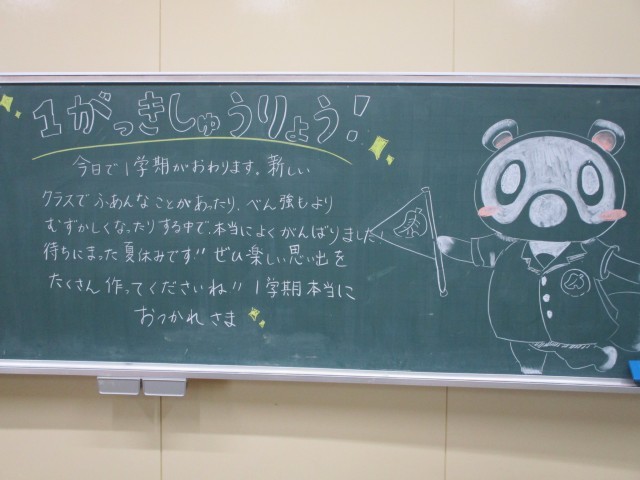 1がっきしゅうりょう!
今日で1学期がおわります。新しい
クラスでふあんなことがあったり、べん強もより
むずかしくなったりする中で、本当によくがんばりました。
待ちにまった夏休みです!! ぜひ楽しい思い出を
たくさん作ってくださいね!! 1学期本当に
おつかれさま